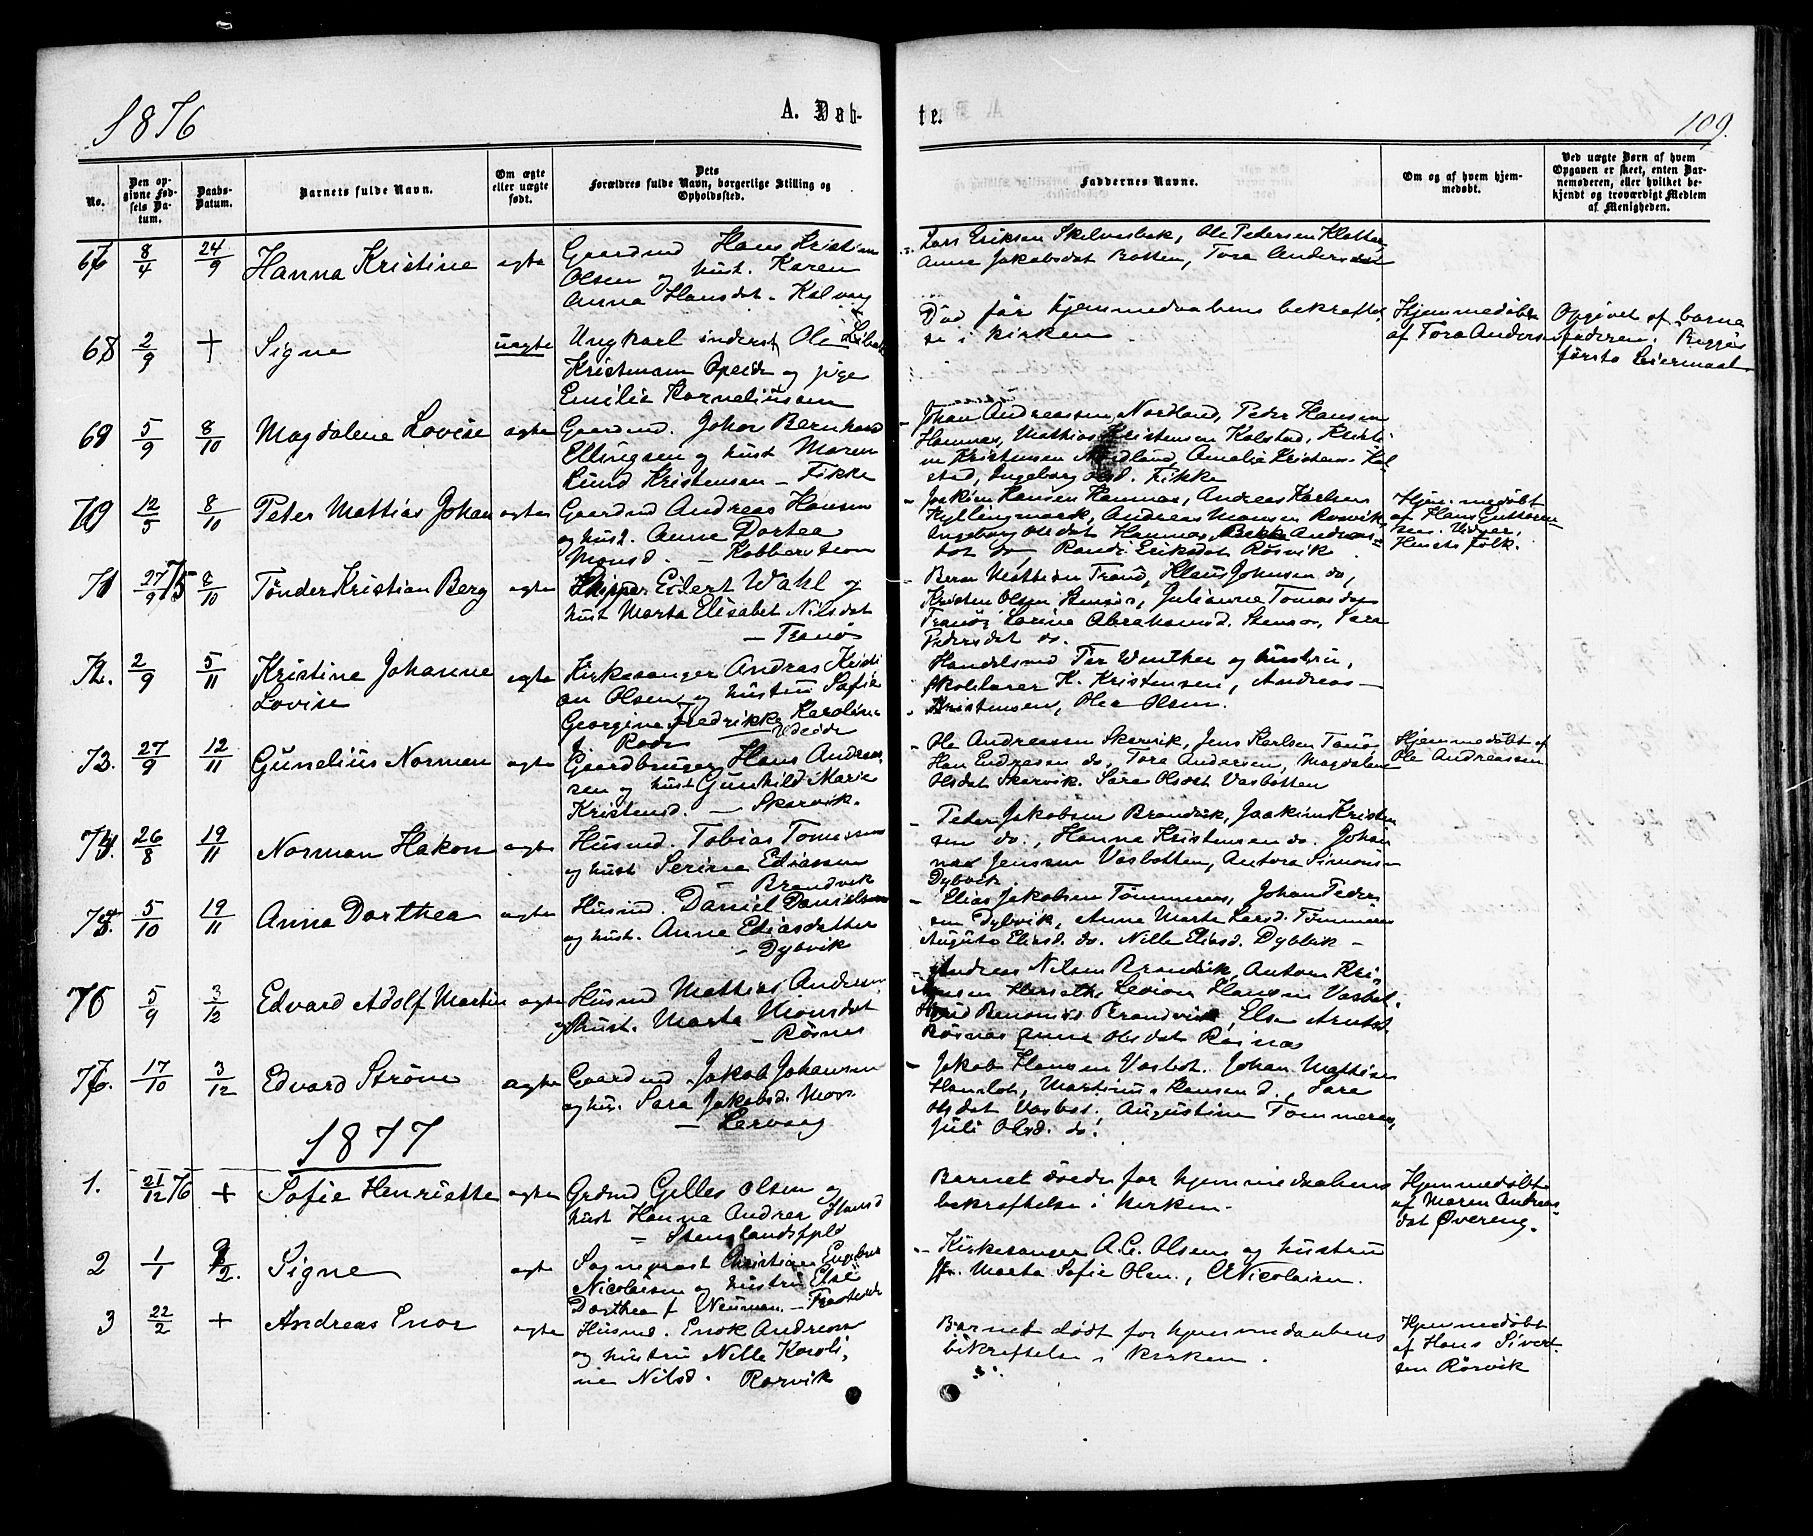 1876
A. Døb-
te.
109.
No.
Den op-
givne Fød-
sels Da-
tum.
Daabs-
Datum.
Barnets fulde Navn.
Om ægte
eller uægte
født.
Dets
Forældres fulde Navn, borgerlige Stilling og
Opholdssted.
Faddernes Navne.
Om og af hvem hjem-
medøbt.
Ved uægte Børn af hvem
Opgaven er skeet, enten Bar-
nemoderen, eller hvilket be-
kjendt og troværdigt Medlem
af Menigheden.
67 8/4 24/9 Hanna Kristine ægte Gaardmd Hans Kristian
Olsen og hust. Karen
Anna Hansdat. Kalvaag
Lars Eriksen Skilvasbak, Ole Pedersen
Anne Jakobsdat Botten, Tora Andersdat
68 2/9 + Signe uægte Ungkarl inderst Ole
Kristensen Opeide og pige
Emilie Korneliussen
Død før hjemmedaabens bekræftel
se i kirken
Hjemmedøbt
af Tora Andersen
Opgivet af barne
faderen. Begges
første Leiermaal
69 5/9 8/10 Magdalene Lovise ægte Gaardmd. Johan Bernhard
Ellingsen og hust Maren
Lund Kristensen – Fikke
Johan Andreassen Nordland, Peder Hansen
Hamnes, Mathias Kristensen Kalstad, Kristi
ne Kristensen Nordland, Amalie Kristens. Kal
stad, Ingeborg Olsd. Fikke
70 12/5 8/10 Peter Mattias Johan ægte Gaardmd Andreas Hansen
og hust. Anne Dortea
Monsd. –
– Joakim Hansen Hamnes, Andreas
Kyllingmark, Andreas Monsen Rosvik,
Ingeborg Olsdat Hamnes, Andreas-
dat do Randi Eriksdat Røsvik
Hjemmedøbt
af Hans Guttorm
sen
71 27/9 75 8/10 Tønder Kristian Berg ægte Skipper Eilert Wahl og
hust Marta Elisabet Nilsdat
– Tranø
– Mathisen Tranø, Klaus Johnsen do,
Kristen Olsen Stensø, Julianne Tomasd
Tranø, Karine Abrahamsd. Stensø, Sara
Pedersdat do.
72. 2/9 5/11 Kristine Johanne ægte Kirkesanger Andreas Kristi
Lovise
an Olsen og hustru Sofie
Georgine Fredrikke Karoline
f. Rode
Handelsmd Per Winther og hustru,
skolelærer K. Kristensen, Andreas
Kristensen, Olea Olsen.
73. 27/9 12/11 Gunelius Norman ægte Gaardbruger Hans Andreas
sen og hust Gunhild Marie
Kristensd. – Skarvik.
– Ole Andreassen Skarvik, Jens Karlsen Tanø
Han Endresen do, Tora Andersen, Magdalene
Olsdat Skarvik. Sara Olsdat Vasbotten
Hjemmedøbt af
Ole Andreassen
74. 26/8 19/11 Norman Hakon ægte Husmd. Tobias Tomassen
og hust Serine Eliassen
– Brandvik
– Peter Jakobsen Brandvik, Joakim Kristen
sen do., Hanna Kristensen do. Johan
nes Jenssen Vasbotten, Antora Simons
Dybvik
75. 5/10 19/11 Anna Dorthea ægte Husmd. Daniel Danielsen
og hust. Anne Eliasdatter
– Dybvik
– Elias Jakobsen Tømmeraas, Johan Peder
sen Dybvik, Anne Marta Larsd. Tømmeraas
Augusta Eliasd. do. Nille Eliasd. Dybvik –
76 5/9 3/12 Edvard Adolf Martin ægte Husmd Mathias Andersen
og hust. Marta Monsdat
– Røsnes
– Andreas Nilsen Brandvik, Anton Kri
stensen Levion Hansen Vasbot.
Benonisd Brandvik, Else Arntsd
Røsnes Anne Olsdat Røsnes
76. 17/10 3/12 Edvard Strøm ægte Gaardmd. Jakob Johansen
og hus. Sara Jakobsd. Moos
– Lervaag
– Jakob Hansen Vasbot. Johan Mathisen
Martinus Hansen d., Sara
Olsdat Vasbot. Augustine Tømmeraas,
Juli Olsd. do.
1877
1. 21/12 76 + Sofie Henriette ægte Grdmd Gilles Olsen og
hust Hanna Andrea Hansd
– Stenslandsfjeld
Barnet døde før hjemmedaabens
bekræftelse i kirken.
Hjemmedøbt
af Maren Andreas-
dat Øvereng.
2 1/1 9/2. Signe ægte Sogneprest Christian Engebret
Nicolaisen og hustru Else
Dorthea f. Neuman. –
– Kirkesanger A.C. Olsen og hustru
Fr. Marta Sofie Olsen., C Nicolaisen.
3 22/2 + Andreas Enor ægte Husmd. Enok Andreassen
og hustru Nille Karoli,
ne Nilsd. Rørvik
Barnet dødt før hjemmedaabens
bekræftelse i kirken.
Hjemmedøbt
af Hans Sivert
sen Rørvik